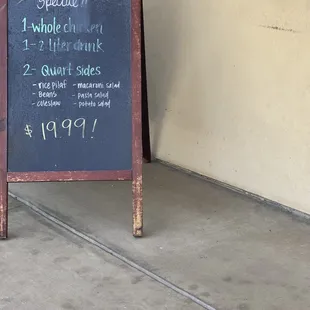 Special!!
1-whole chicken
1-2 liter drink
2- Quart Sides
-rice pilaf -macaroni salad
-Beans -pasta salad
-coleslaw -potato salad
$19.99!